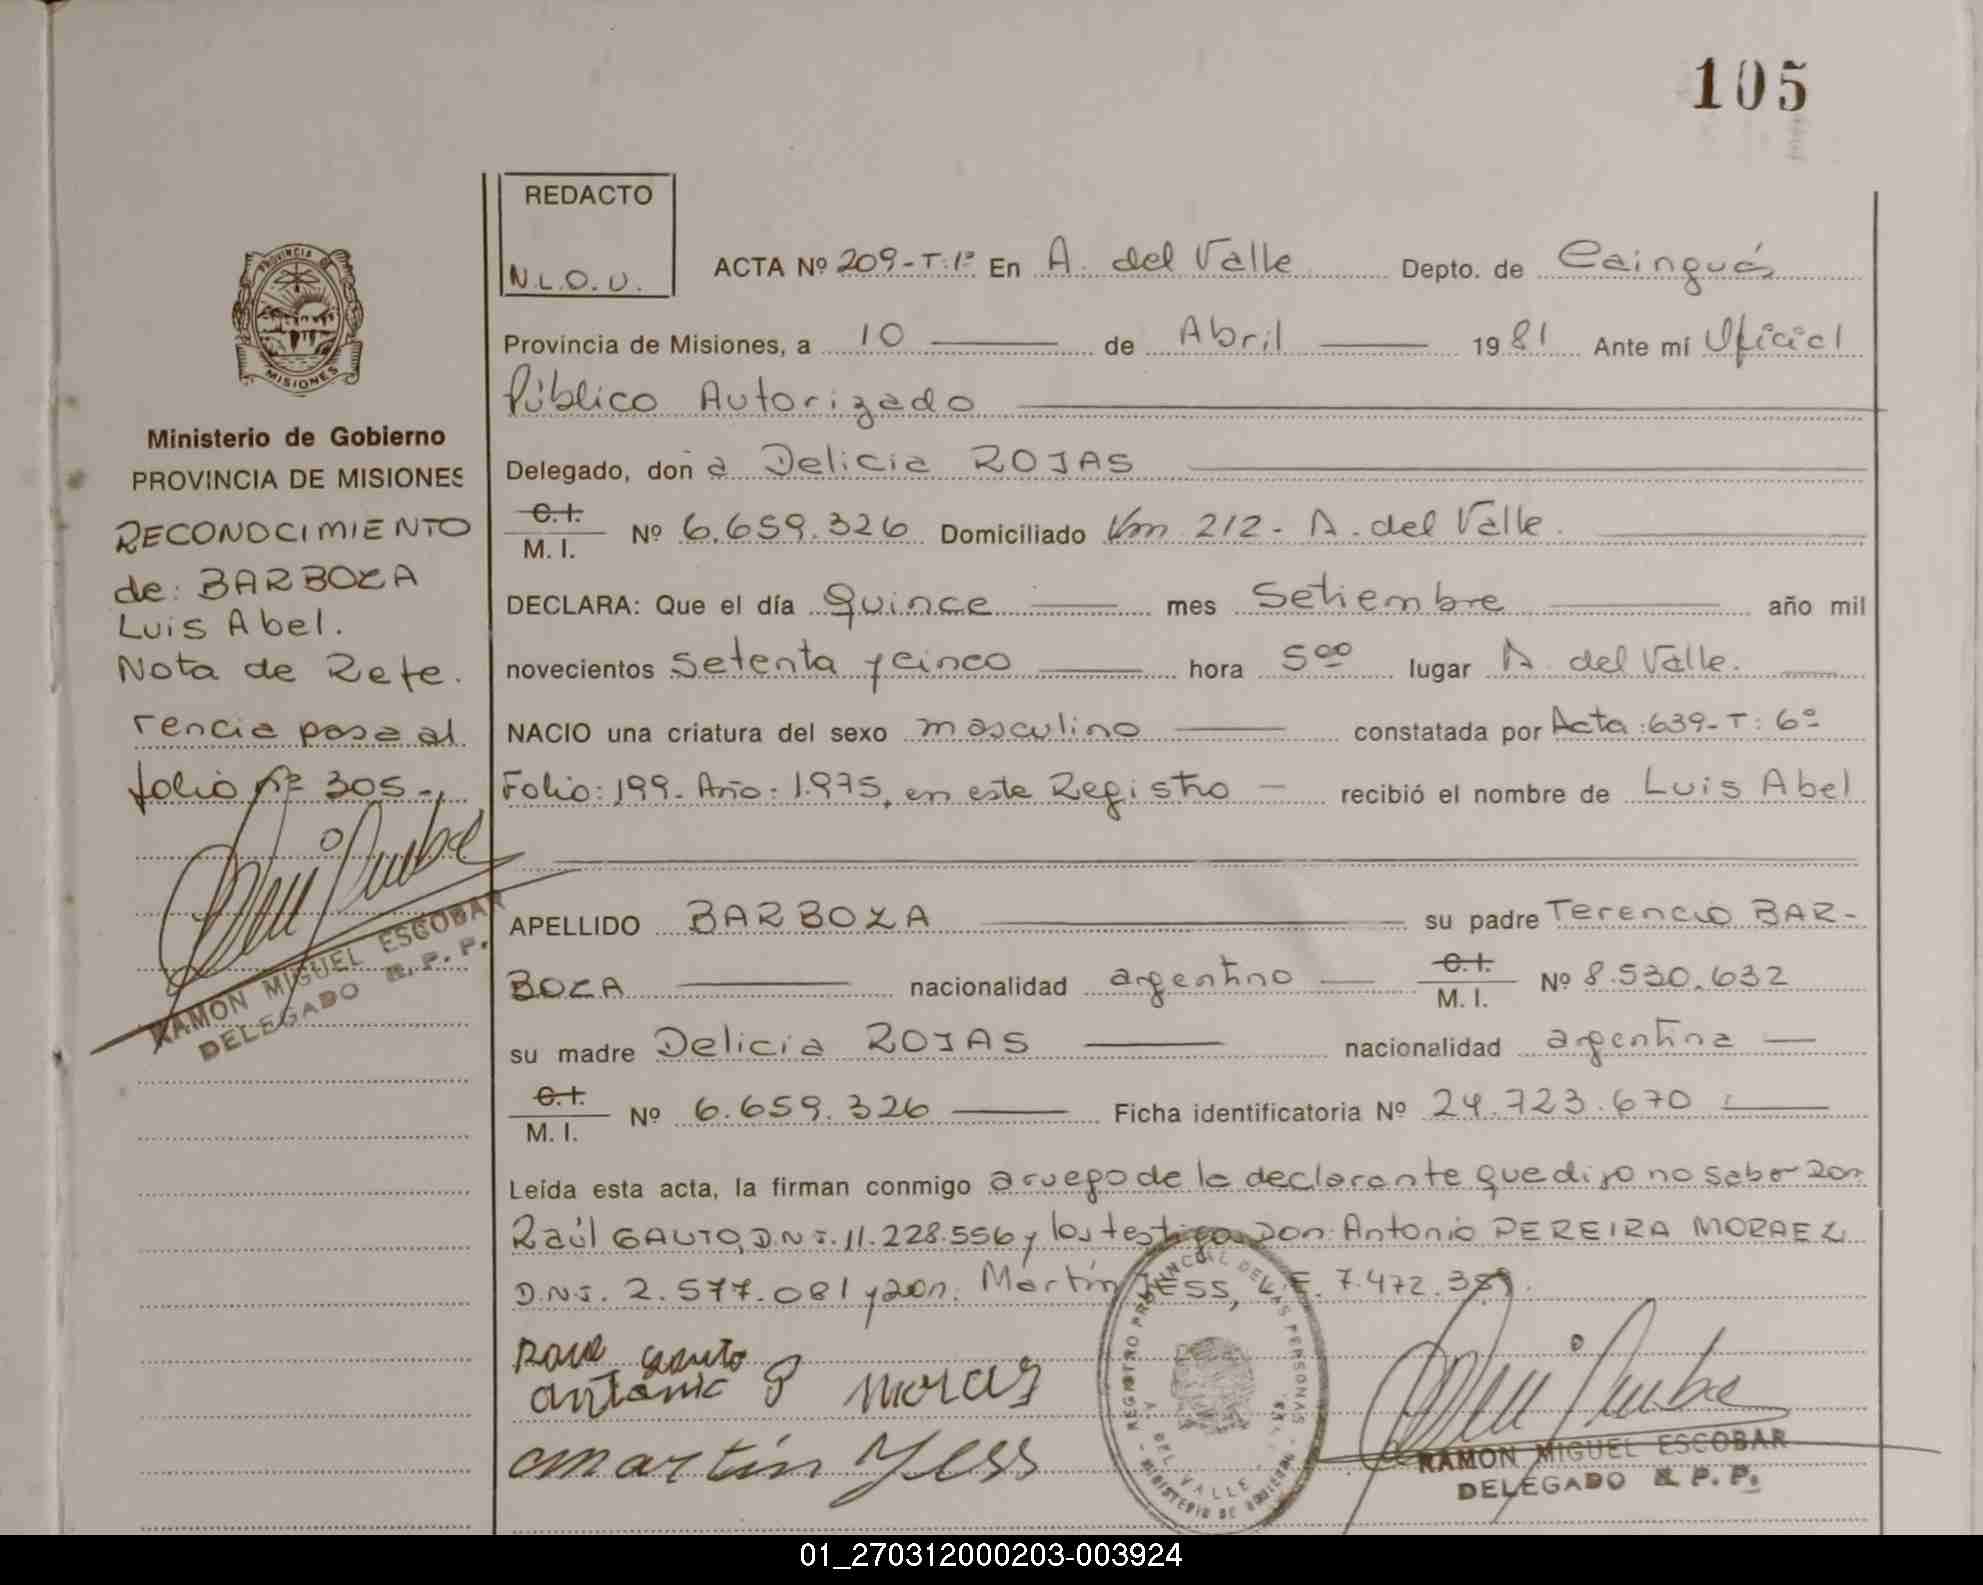 105
REDACTO
N.L.O.U.
ACTA Nº 209-T:1º En A. del Valle Depto. de Cainguás
Provincia de Misiones, a 10 de Abril 1981 Ante mí Oficial
Público Autorizado
Delegado, don a Delicia ROJAS
C.I.
M.I. Nº 6.659.326 Domiciliado Km 212- A. del Valle.
DECLARA: Que el día Quince mes Setiembre año mil
novecientos setenta y cinco hora 5ºº lugar A. del Valle.
NACIO una criatura del sexo masculino constatada por Acta:639-T:6º
Folio:199-Año:1.975, en este Registro recibió el nombre de Luis Abel
APELLIDO BARBOZA su padre Terencio BAR-
BOZA nacionalidad argentino C.I.
M.I. Nº 8.530.632
su madre Delicia ROJAS nacionalidad argentina
C.I.
M.I. Nº 6.659.326 Ficha identificatoria Nº 24.723.670
Leída esta acta, la firman conmigo a ruego de la declarante que dijo no saber Don
Raúl GAUTO, D.N.I. 11.228.556 y los testigos Don: Antonio PEREIRA MORAEZ
D.N.I. 2.577.081 y don. Martín JESS, L.E. 7.472.389.
Raul Gauto
Antonio P Moraez
Martin Yess
REGISTRO PROVINCIAL DE LAS PERSONAS
A. DEL VALLE
MINISTERIO DE GOBIERNO
RAMON MIGUEL ESCOBAR
DELEGADO R.P.P.
PROVINCIA
MISIONES
Ministerio de Gobierno
PROVINCIA DE MISIONES
RECONOCIMIENTO
de: BARBOZA
Luis Abel.
Nota de Refe.
rencia pasa al
folio nº 305-.
RAMON MIGUEL ESCOBAR
DELEGADO R.P.P.
01_270312000203-003924